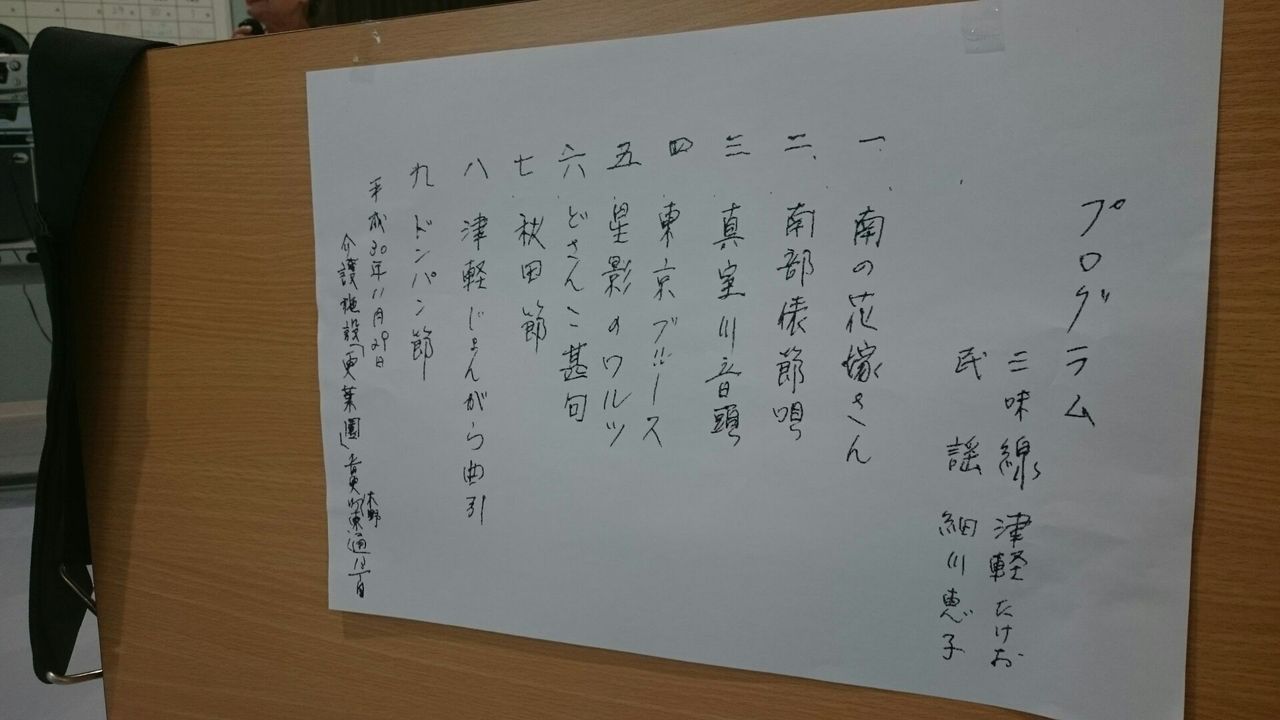 プログラム
三味線 津軽たけお
民謡 細川恵子
一、南の花嫁さん
二、南部俵節唄
三 真室川音頭
四 東京ブルース
五 星影のワルツ
六 どさんこ甚句
七 秋田節
八 津軽じょんがら曲引
九 ドンパン節
平成30年11月29日
介護施設「東葉園」